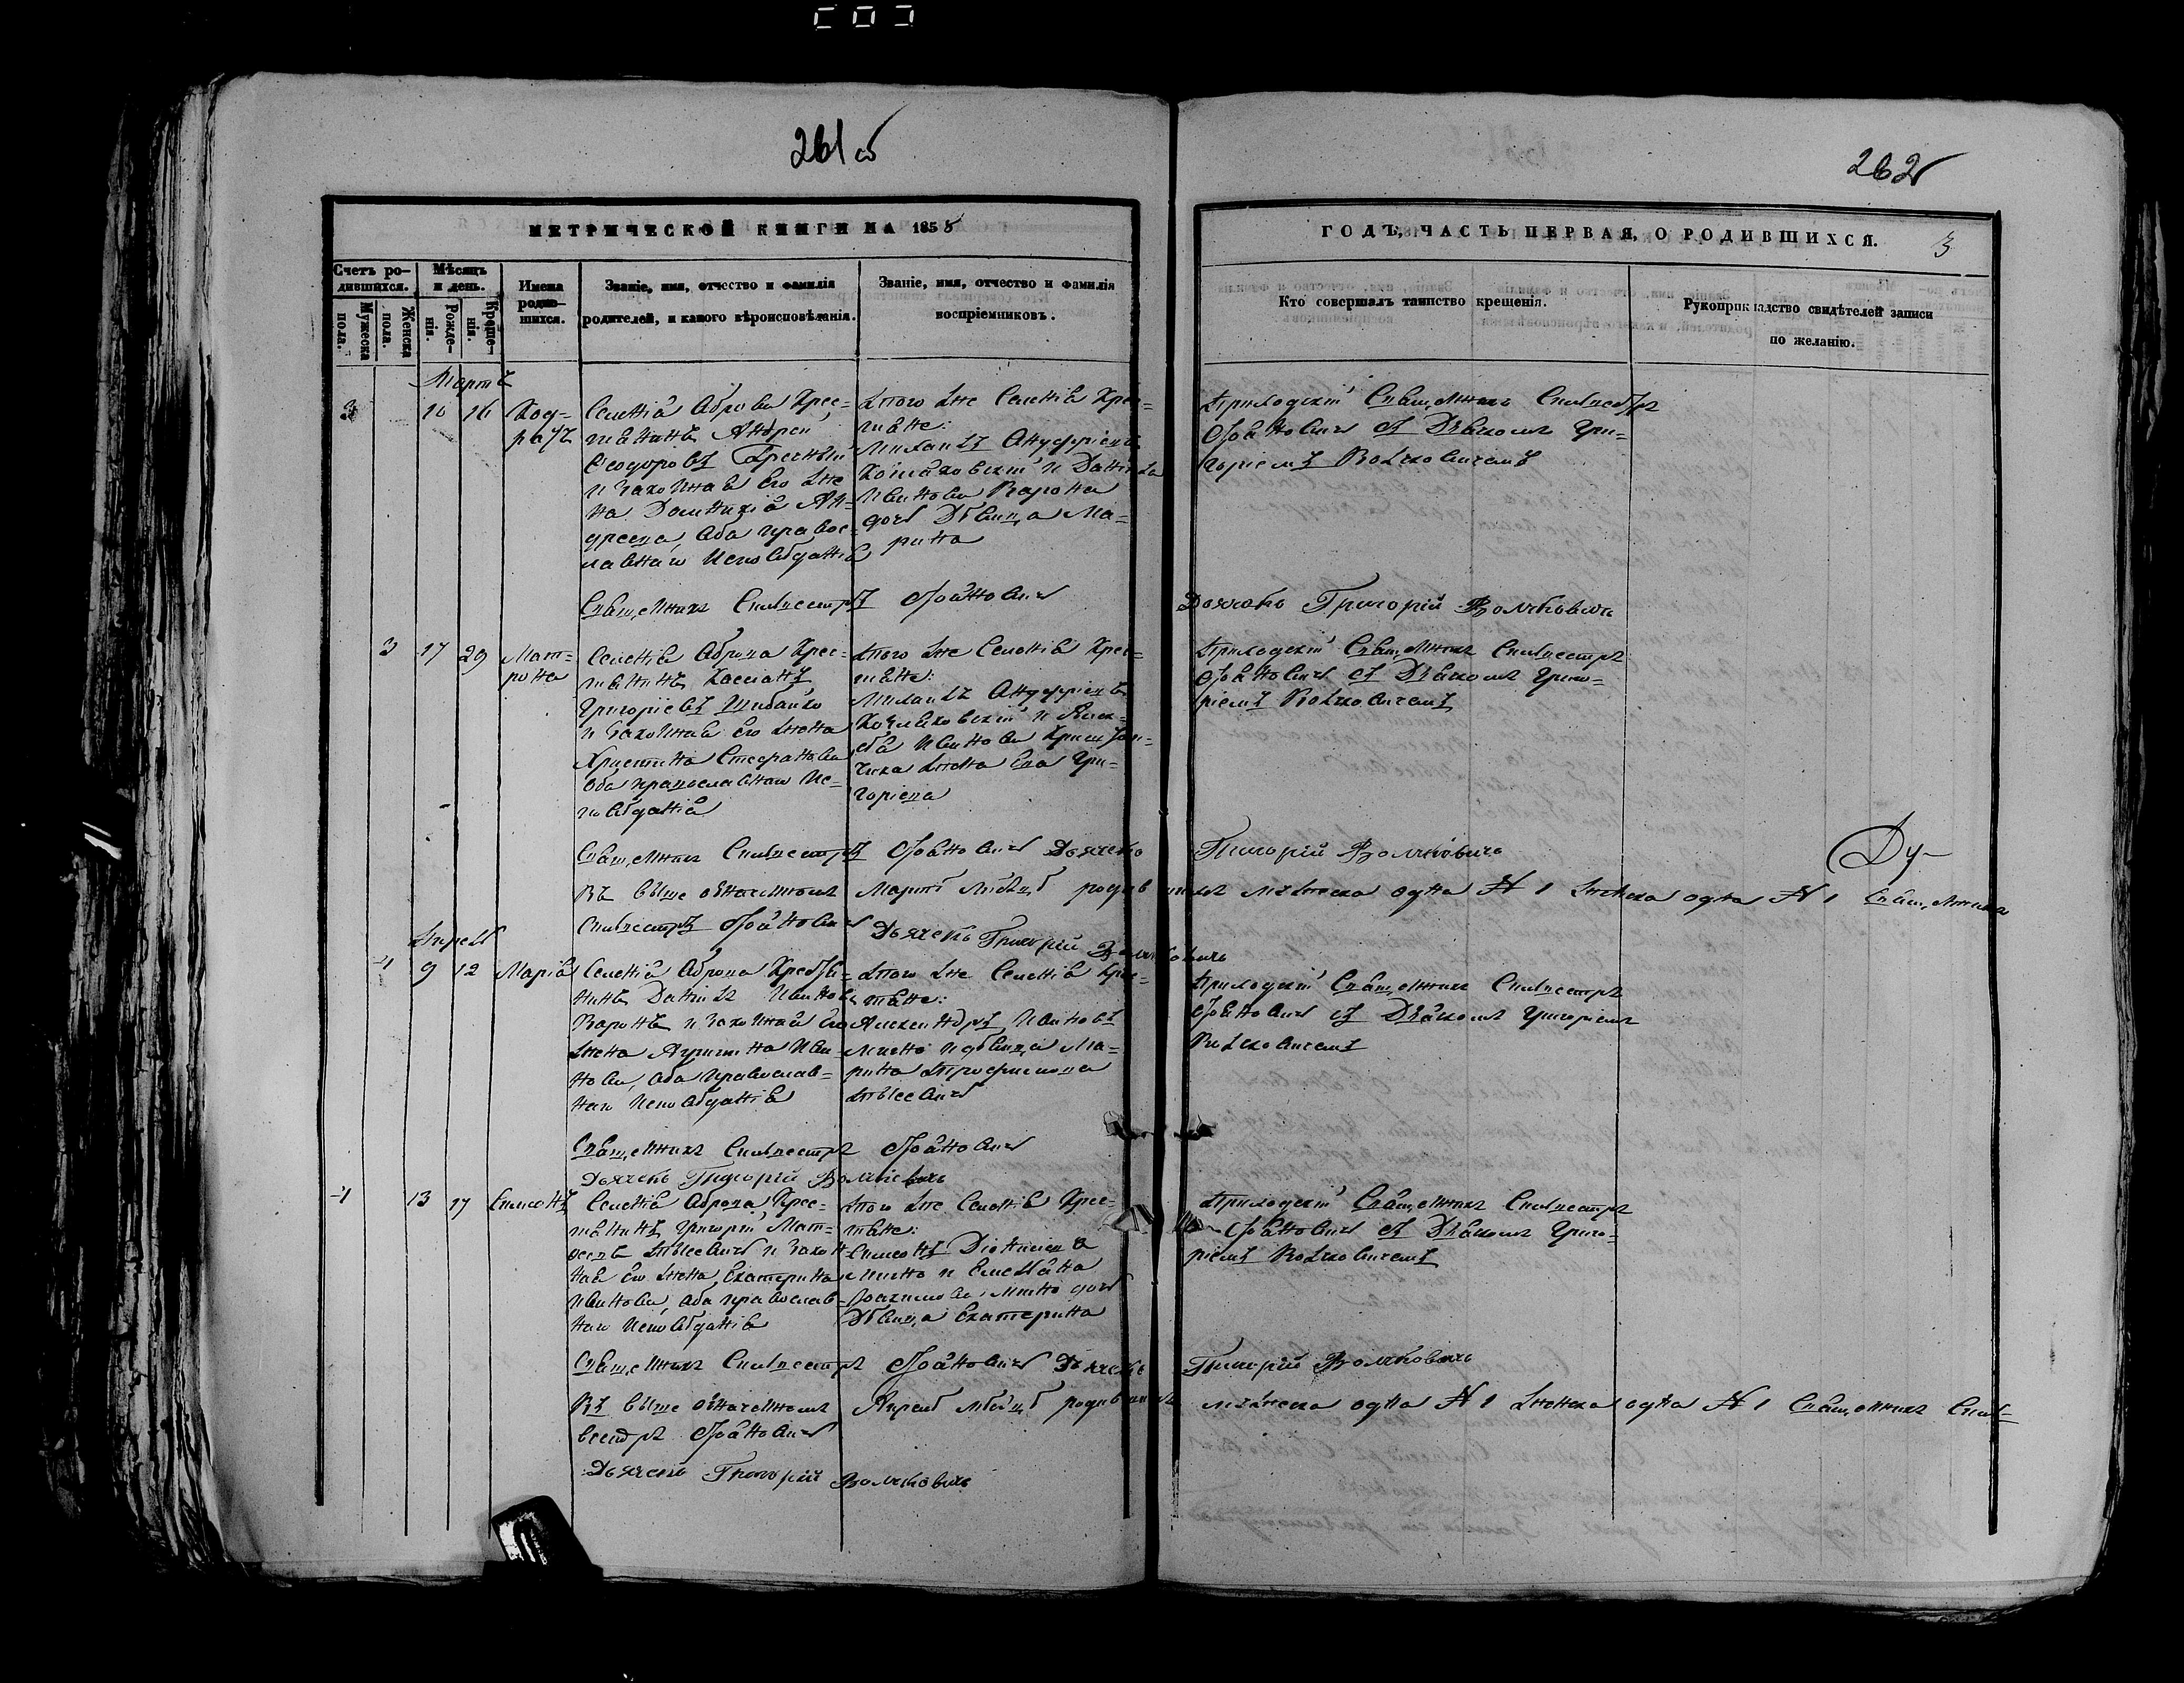 261 об
262
МЕТРИЧЕСКОЙ КНИГИ НА 1858
ГОДЪ, ЧАСТЬ ПЕРВАЯ, О РОДИВШИХСЯ.
3
Счетъ ро-
дившихся.
Мужеска
пола.
Женска
пола.
Мѣсяцъ
и день.
Рожде-
нія.
Креще-
нія.
Имена
родив-
шихся.
Званіе, имя, отчество и фамилія
родителей, и какого вѣроисповѣданія.
Званіе, имя, отчество и фамилія
воспріемниковъ.
Кто совершалъ таинство крещенія.
Рукоприкладство свидѣтелей записи
по желанію.
Мартъ
3 10 16
Селенія Оброва Крес-
тянинъ Андрей
Ѳеодоровъ
и законная его же-
на Ан-
дреева, оба правос-
лавнаго исповѣданія
того же Селенія Крес-
тяне:
Михаилъ Ануфріевъ
и Данила
Иванова Варона
дочь Дѣвица Ма-
рина
Приходскій Священникъ Сильвестръ
съ Дьякомъ Гри-
горіемъ Волковичемъ
Священникъ Сильвестръ
Дьячекъ Григорій Волчковичъ
3 17 29 Мат-
рона
Селенія Оброва Крес-
тянинъ Касіанъ
Григоріевъ Шибайко
и законная его жена
Христина Стефанова
оба православнаго ис-
повѣданія
того же Селенія Крес-
тяне:
Михаилъ Ануфріевъ
и
Иванова
жена Ева Гри-
горіева
Приходскій Священникъ Сильвестръ
съ Дьякомъ Григо-
ріемъ Волковичемъ
Священникъ Сильвестръ Дьячекъ Григорій Волчковичъ
Ду-
Въ выше означенномъ Мартѣ мѣсяцѣ родившихъ мужеска одна N 1 женска одна N 1 Священникъ
Сильвестръ Дьячекъ Григорій Волчковичъ
Апрель
4 9 12 Марія
Селенія Оброва Крестья-
нинъ Данилъ Ивановъ
Варонъ и законная его
жена Агрипина Ива-
нова, оба православ-
наго исповѣданія
того же Селенія Крес-
тяне:
Александръ Ивановъ
Мисно и дѣвица Ма-
рина Трофимова
Приходскій Священникъ Сильвестръ
съ Дьякомъ Григоріемъ
Волковичемъ
Священникъ Сильвестръ
Дьячекъ Григорій Волчковичъ
4 13 17 Симеонъ
Селенія Оброва Крес-
тянинъ Григорій Мат-
ѳеевъ и закон-
ная его жена Екатерина
Иванова, оба православ-
наго исповѣданія
того же Селенія Крес-
тяне:
Симеонъ Діонисіевъ
Мисно и Емельяна
Іоакимова Мисно дочь
Дѣвица Екатерина
Приходскій Священникъ Сильвестръ
съ Дьякомъ Григо-
ріемъ Волковичемъ
Священникъ Сильвестръ Дьячекъ Григорій Волчковичъ
Въ выше означенномъ Апрелѣ мѣсяцѣ родившихъ мужеска одна N 1 женска одна N 1 Священникъ Силь-
вестръ
Дьячекъ Григорій Волчковичъ